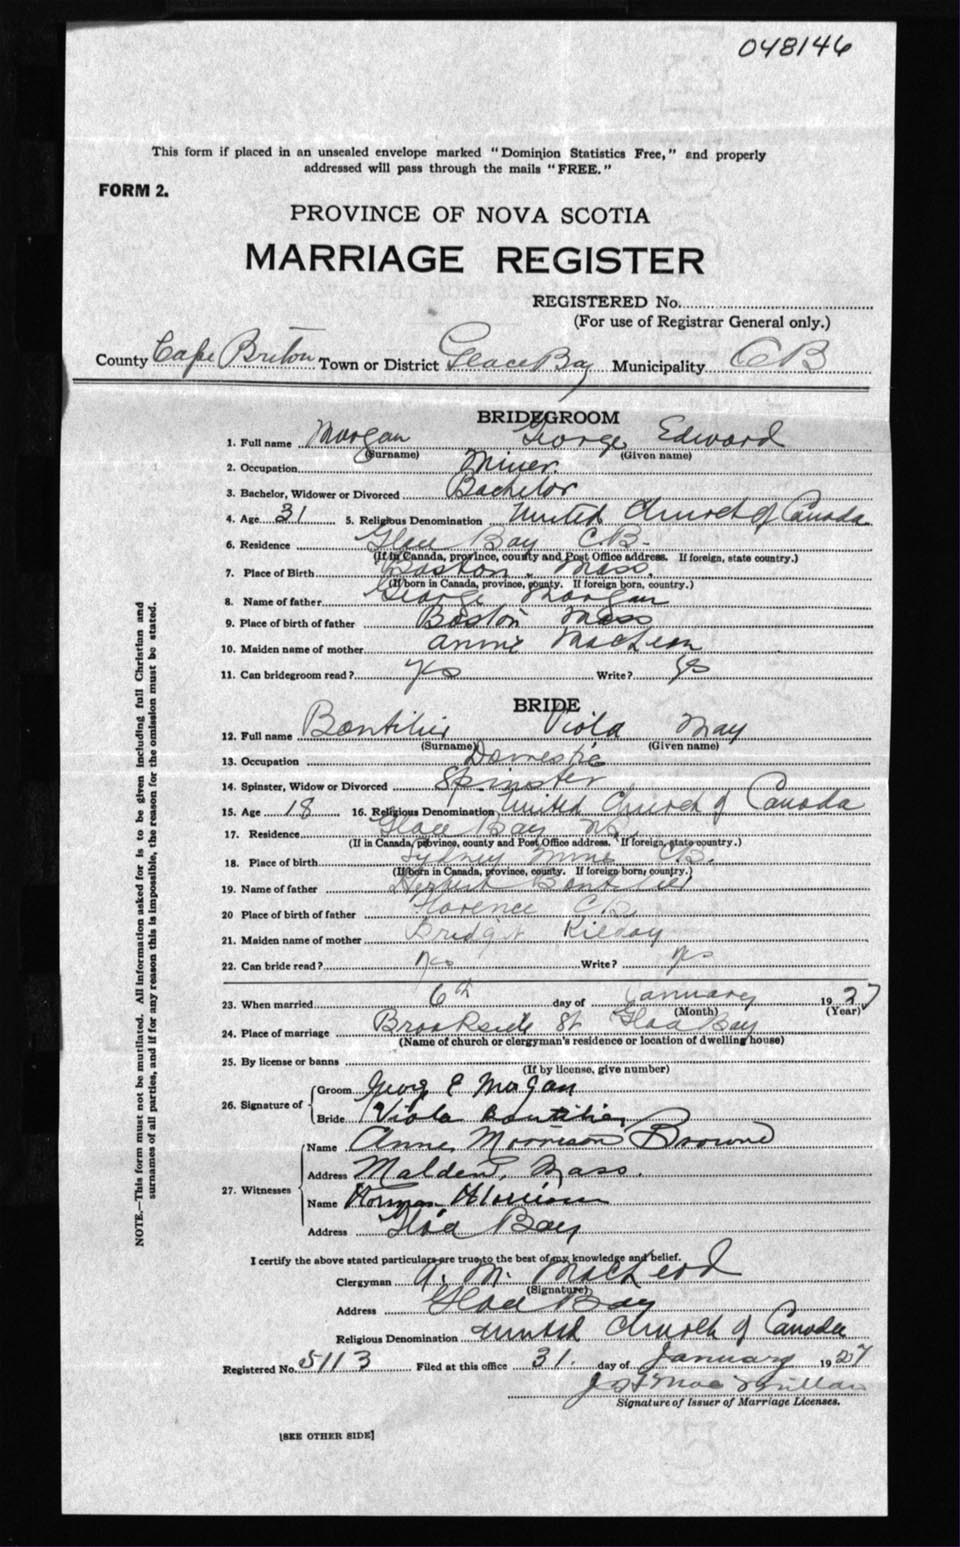 048146
This form if placed in an unsealed envelope marked "Dominion Statistics Free," and properly
addressed will pass through the mails "FREE."
FORM 2.
PROVINCE OF NOVA SCOTIA
MARRIAGE REGISTER
REGISTERED No.
(For use of Registrar General only.)
County Cape Breton Town or District Glace Bay Municipality CB
BRIDEGROOM
1. Full name Morgan George Edward
(Surname) (Given name)
2. Occupation Miner
3. Bachelor, Widower or Divorced Bachelor
4. Age 31 5. Religious Denomination United Church of Canada
6. Residence Glace Bay C.B.
(If in Canada, province, county and Post Office address. If foreign, state country.)
7. Place of Birth Boston, Mass.
(If born in Canada, province, county. If foreign born, country.)
8. Name of father George Morgan
9. Place of birth of father Boston Mass
10. Maiden name of mother Annie MacLean
11. Can bridegroom read? Yes Write? Yes
BRIDE
12. Full name Boutilier Viola May
(Surname) (Given name)
13. Occupation Domestic
14. Spinster, Widow or Divorced Spinster
15. Age 18 16. Religious Denomination United Church of Canada
17. Residence Glace Bay N.S.
(If in Canada, province, county and Post Office address. If foreign, state country.)
18. Place of birth Sydney Mine C.B.
(If born in Canada, province, county. If foreign born, country.)
19. Name of father Herbert Boutilier
20 Place of birth of father Florence C.B.
21. Maiden name of mother Bridget
22. Can bride read? Yes Write? Yes
23. When married 6th day of January 1927
(Month) (Year)
24. Place of marriage Brookside St Glace Bay
(Name of church or clergyman's residence or location of dwelling house)
25. By license or banns
(If by license, give number)
26. Signature of Groom George E Morgan
Bride Viola Boutilier
27. Witnesses Name Anne Morrison Browne
Address Malden, Mass.
Name Norman Morrison
Address Glace Bay
I certify the above stated particulars are true to the best of my knowledge and belief.
Clergyman A. M. MacLeod
(Signature)
Address Glace Bay
Religious Denomination United Church of Canada
Registered No. 5113 Filed at this office 31. day of January 1927
MacMillan
Signature of Issuer of Marriage Licenses.
[SEE OTHER SIDE]
NOTE.—This form must not be mutilated. All information asked for is to be given including full Christian and
surnames of all parties, and if for any reason this is impossible, the reason for the omission must be stated.